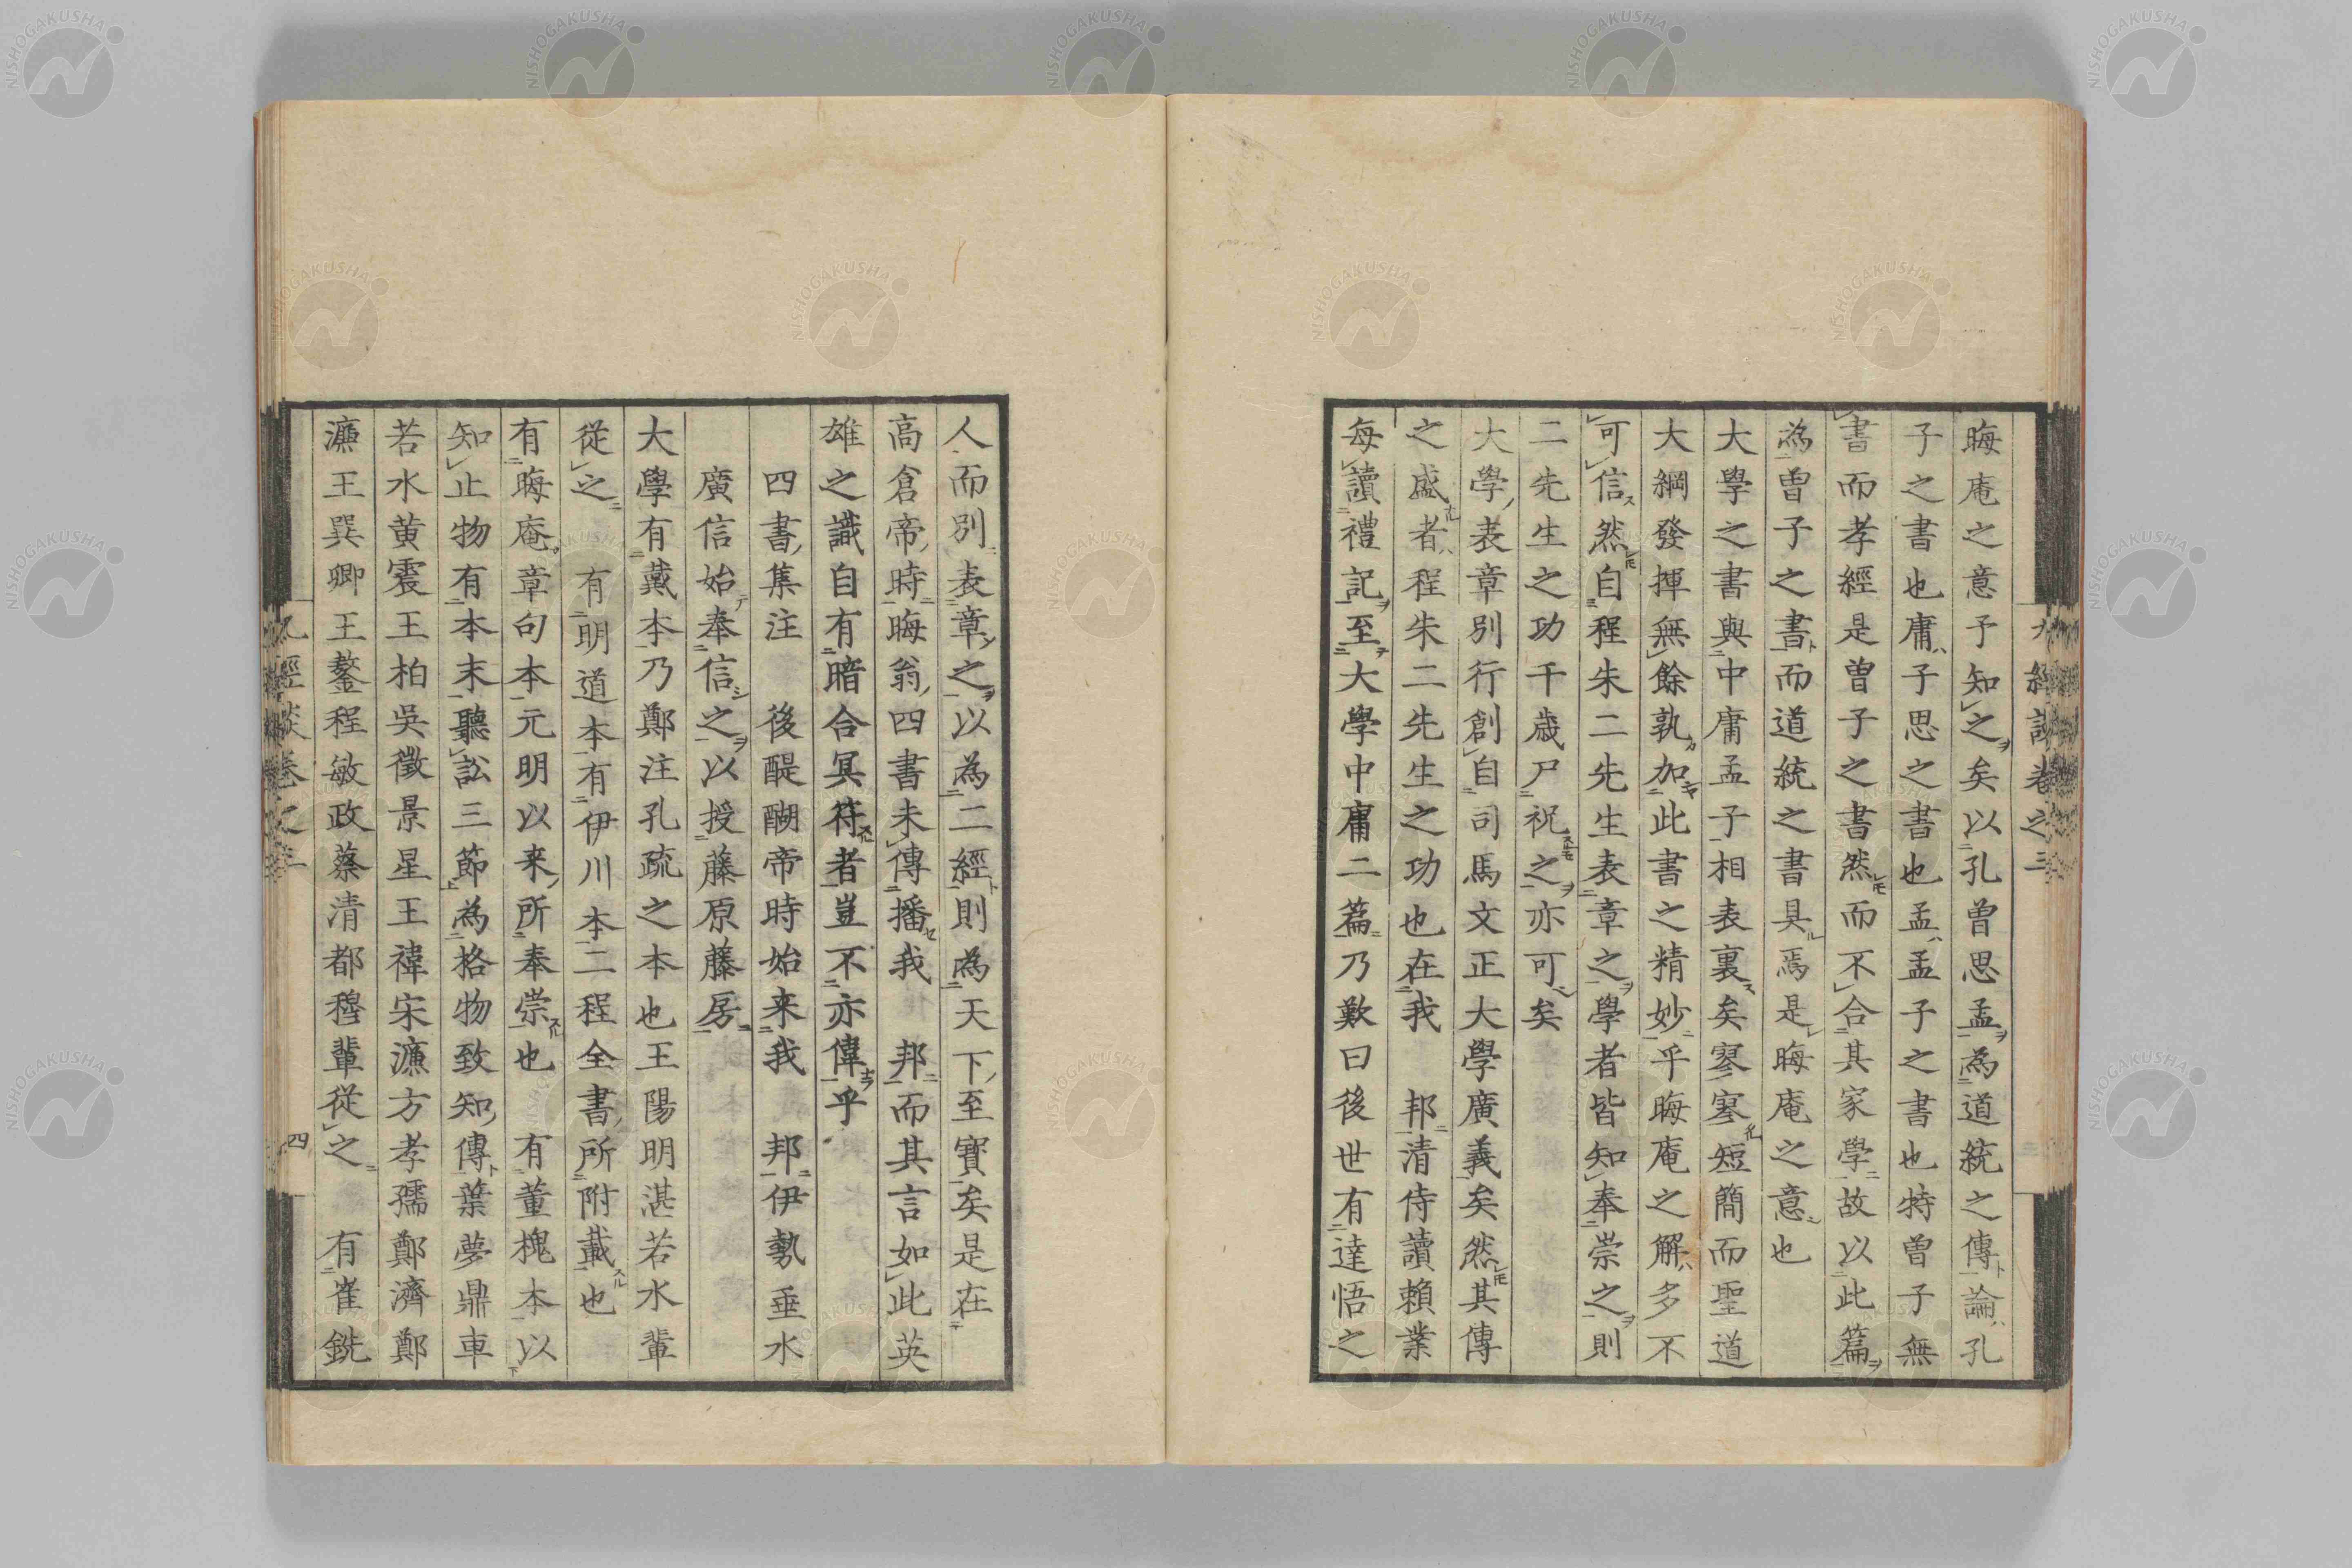 晦庵之意予知之矣以孔曽思孟為道統之傳論孔
子之書也庸子思之書也孟孟子之書也特曽子無
書而孝經是曽子之書然而不合其家學故以此篇
為曽子之書而道統之書具焉是晦庵之意也
大學之書與中庸孟子相表裏矣寥寥短簡而聖道
大綱發揮無餘孰加此書之精妙乎晦庵之解多不
可信然自程朱二先生表章之學者皆知奉崇之則
二先生之功千歳尸祝之亦可矣
大學表章別行創自司馬文正大學廣義矣然其傳
之盛者程朱二先生之功也在我 邦清侍讀賴業
每讀禮記至大學中庸二篇乃歎曰後世有達悟之
人而別表章之以為二經則為天下至寶矣是在
高倉帝時晦翁四書未傳播我 邦而其言如此英
雄之識自有暗合冥符者豈不亦偉乎
四書集注 後醍醐帝時始来我 邦伊勢垂水
廣信始奉信之以授藤原藤房
大學有戴本乃鄭注孔疏之本也王陽明湛若水輩
從之 有明道本有伊川本二程全書所附載也
有晦庵章句本元明以来所奉崇也 有董槐本以
知止物有本末聽訟三節為格物致知傳葉夢鼎車
若水黄震王柏吳徵景星王禕宋濂方孝孺鄭濟鄭
濂王巽卿王鏊程敏政蔡清都穆輩從之 有崔銑
九經談卷之三
四